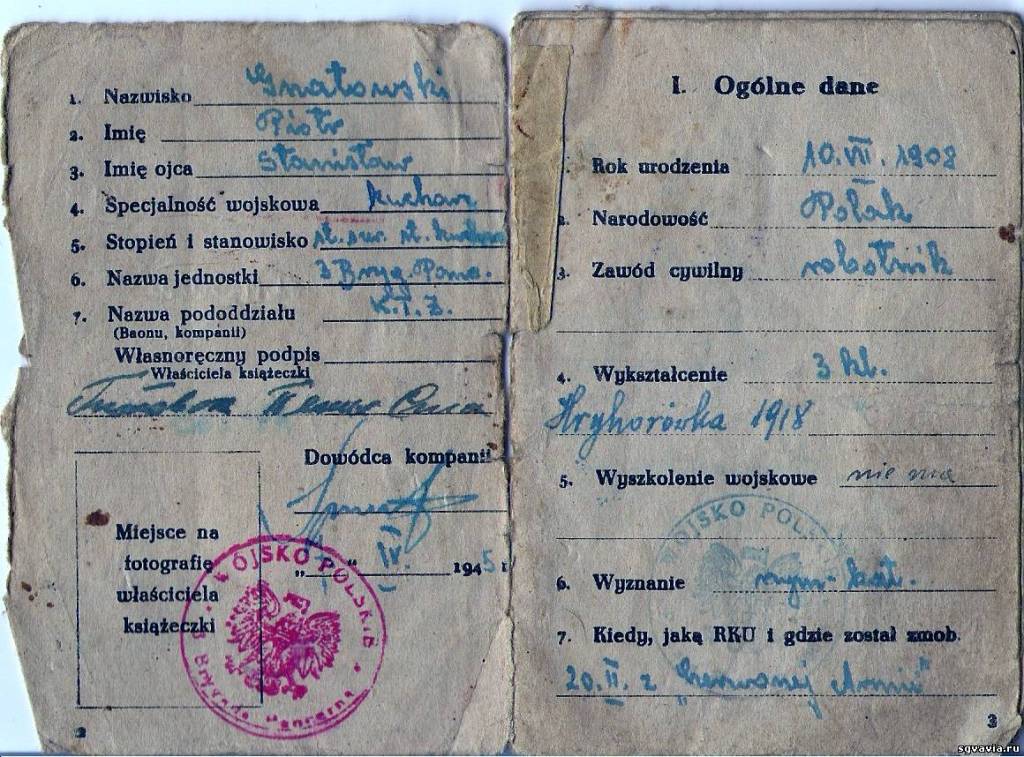 1. Nazwisko Gnatowski
2. Imię Piotr
3. Imię ojca Stanisław
4. Specjalność wojskowa kucharz
5. Stopień i stanowisko st. kucharz
6. Nazwa jednostki 3 Bryg.
7. Nazwa pododdziału K.T.Z.
(Baonu, kompanii)
Własnoręczny podpis
Właściciela książeczki
Dowódca kompanii
„ “ IV. 1945 r
Miejsce na
fotografię
właściciela
książeczki
WOJSKO POLSKIE
3 Brygada
2
I. Ogólne dane
Rok urodzenia 10.VII.1908
2. Narodowość Polak
3. Zawód cywilny robotnik
4. Wykształcenie 3 kl.
Hryhorówka 1918
5. Wyszkolenie wojskowe nie ma
WOJSKO POLSKIE
6. Wyznanie rzym-kat.
7. Kiedy, jaką RKU i gdzie został zmob.
20.II. z „Czerwonej Armii"
3
sgvavia.ru